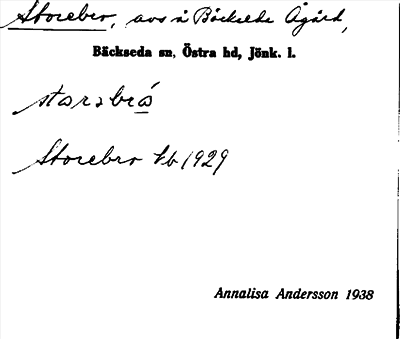 Storebro, avs å Bäckseda Ägård,
Bäckseda sn, Östra hd, Jönk. l.
starabro
Storebro kb 1929
Annalisa Andersson 1938